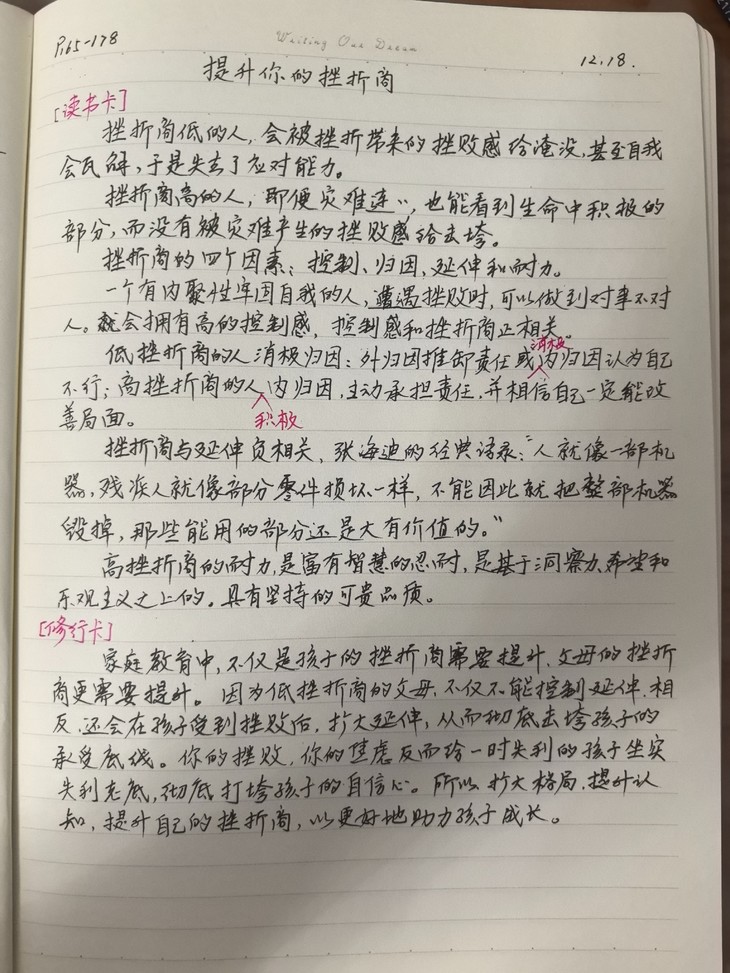 P165-178
Writing Our Dream
12.18.
提升你的挫折商
[读书卡]
挫折商低的人，会被挫折带来的挫败感给淹没，甚至自我
会瓦解，于是失去了应对能力。
挫折商高的人，即便灾难连连，也能看到生命中积极的
部分，而没有被灾难产生的挫败感给击垮。
挫折商的四个因素：控制、归因、延伸和耐力。
一个有内聚性牢固自我的人，遭遇挫败时，可以做到对事不对
人。就会拥有高的控制感，控制感和挫折商正相关。
低挫折商的人消极归因：外归因推卸责任或消极内归因认为自己
不行；高挫折商的人积极内归因，主动承担责任，并相信自己一定能改
善局面。
挫折商与延伸负相关，张海迪的经典语录：“人就像一部机
器，残疾人就像部分零件损坏一样，不能因此就把整部机器
毁掉，那些能用的部分还是大有价值的。”
高挫折商的耐力，是富有智慧的忍耐，是基于洞察力、希望和
乐观主义之上的。具有坚持的可贵品质。
[修行卡]
家庭教育中，不仅是孩子的挫折商需要提升，父母的挫折
商更需要提升。因为低挫折商的父母，不仅不能控制延伸，相
反，还会在孩子受到挫败后，扩大延伸，从而彻底击垮孩子的
承受底线。你的挫败，你的焦虑反而给一时失利的孩子坐实
失利老底，彻底打垮孩子的自信心。所以，扩大格局，提升认
知，提升自己的挫折商，以更好地助力孩子成长。